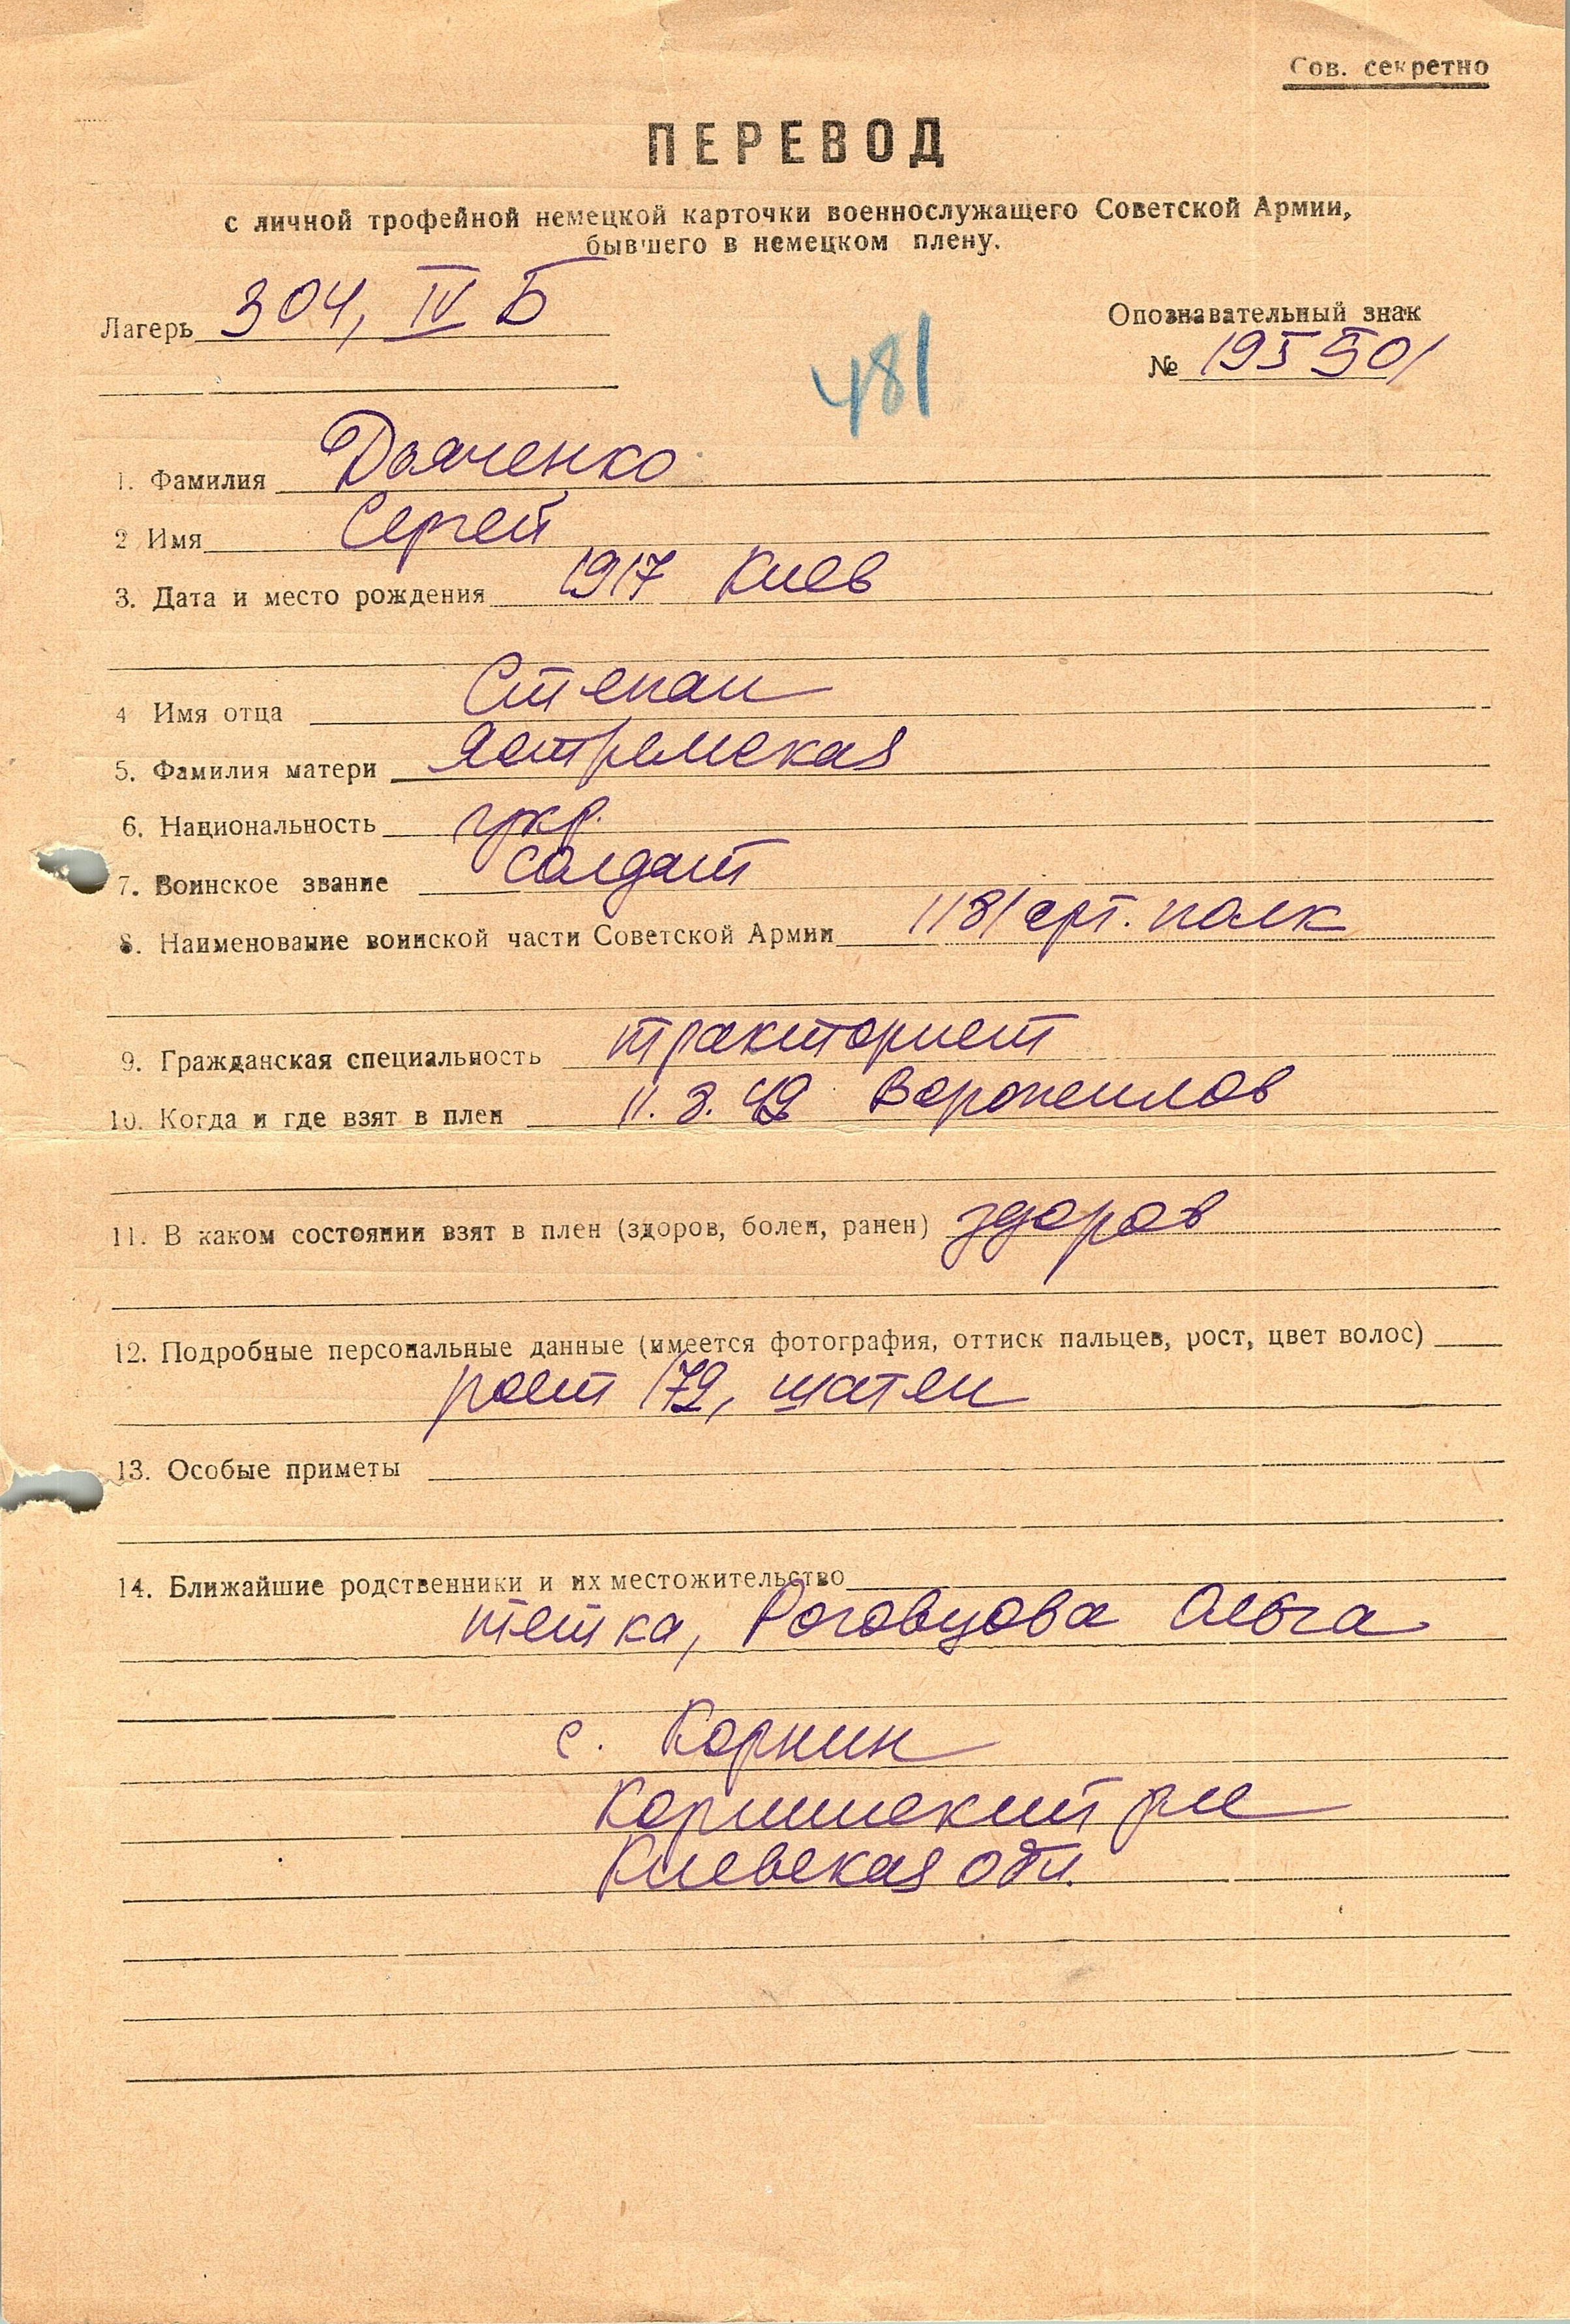 Сов. секретно
ПЕРЕВОД
с личной трофейной немецкой карточки военнослужащего Советской Армии,
бывшего в немецком плену.
Лагерь 304, IV Б
Опознавательный знак
№ 195501
481
1. Фамилия Дьяченко
2 Имя Сергей
3. Дата и место рождения 1917 Киев
4 Имя отца Степан
5. Фамилия матери Ястремская
6. Национальность укр.
7. Воинское звание солдат
8. Наименование воинской части Советской Армии 1181 арт. полк
9. Гражданская специальность тракторист
10. Когда и где взят в плен 11.8.42 Ворошилов
11. В каком состоянии взят в плен (здоров, болен, ранен) здоров
12. Подробные персональные данные (имеется фотография, оттиск пальцев, рост, цвет волос)
рост 172, шатен
13. Особые приметы
14. Ближайшие родственники и их местожительство
тетка, Роговцова Ольга
с. Корнин
Корнинский рн
Киевская обл.